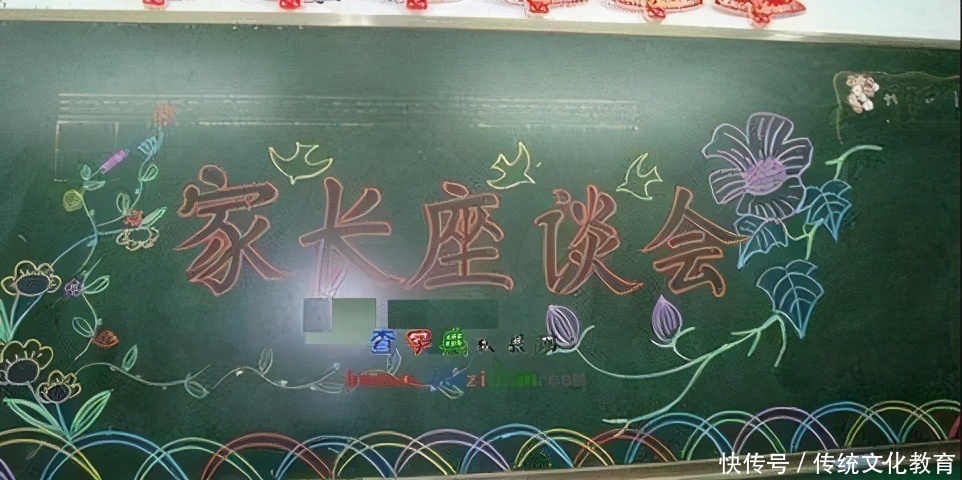 家长座谈会
查字典
快传号 / 传统文化教育